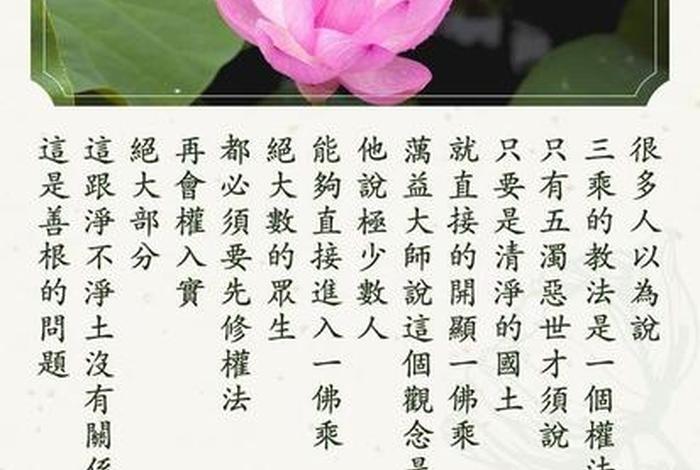 很多人以為說
三乘的教法是一個權法
只有五濁惡世才須說
只要是清淨的國土
就直接的開顯一佛乘
蕅益大師說這個觀念是
他說極少數人
能夠直接進入一佛乘
絕大數的眾生
都必須要先修權法
再會權入實
絕大部分
這跟淨不淨土沒有關係
這是善根的問題